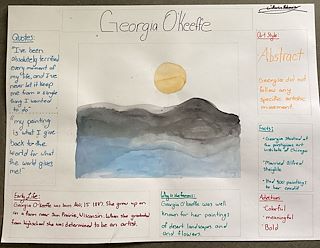 Georgia O'Keeffe
Quotes:
"I've been
absolutely terrified
every moment of
my life, and I've
never let it keep
me from a single
thing I wanted
to do."
"my painting
is what I give
back to the
world for what
the world gives
me."
Art Style:
Abstract
Georgia did not
follow any
specific artistic
movement.
Facts:
-Georgia Studied at
the
institute of Chicago
-had 900 paintings to
her credit
Adjectives:
-Colorful
-meaningful
-Bold
Early Life:
Georgia was born Nov, 15 1887. She grew up
on a farm near Sun Prairie, Wisconsin. When she graduated
from highschool she was determined to be an artist.
Georgia O'Keeffe was
well known for her
paintings of
desert landscapes and
and flowers.